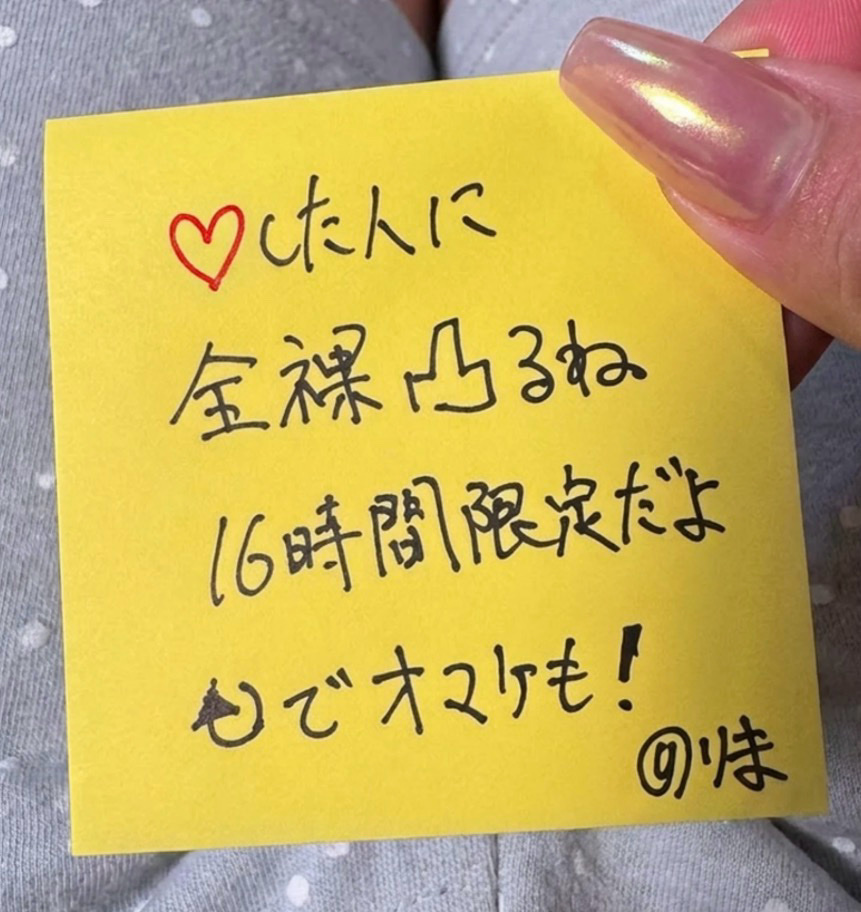 ♡した人に
全裸凸るね
16時間限定だよ
でオマケも!
@りま